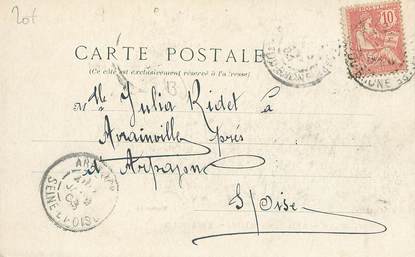 20f
CARTE POSTALE
(Ce côté est exclusivement réservé à l'adresse)
Mlle Julia Ridet à
Avrainville près
d'Arpajon
S/Oise
10
SEINE ET OISE
03